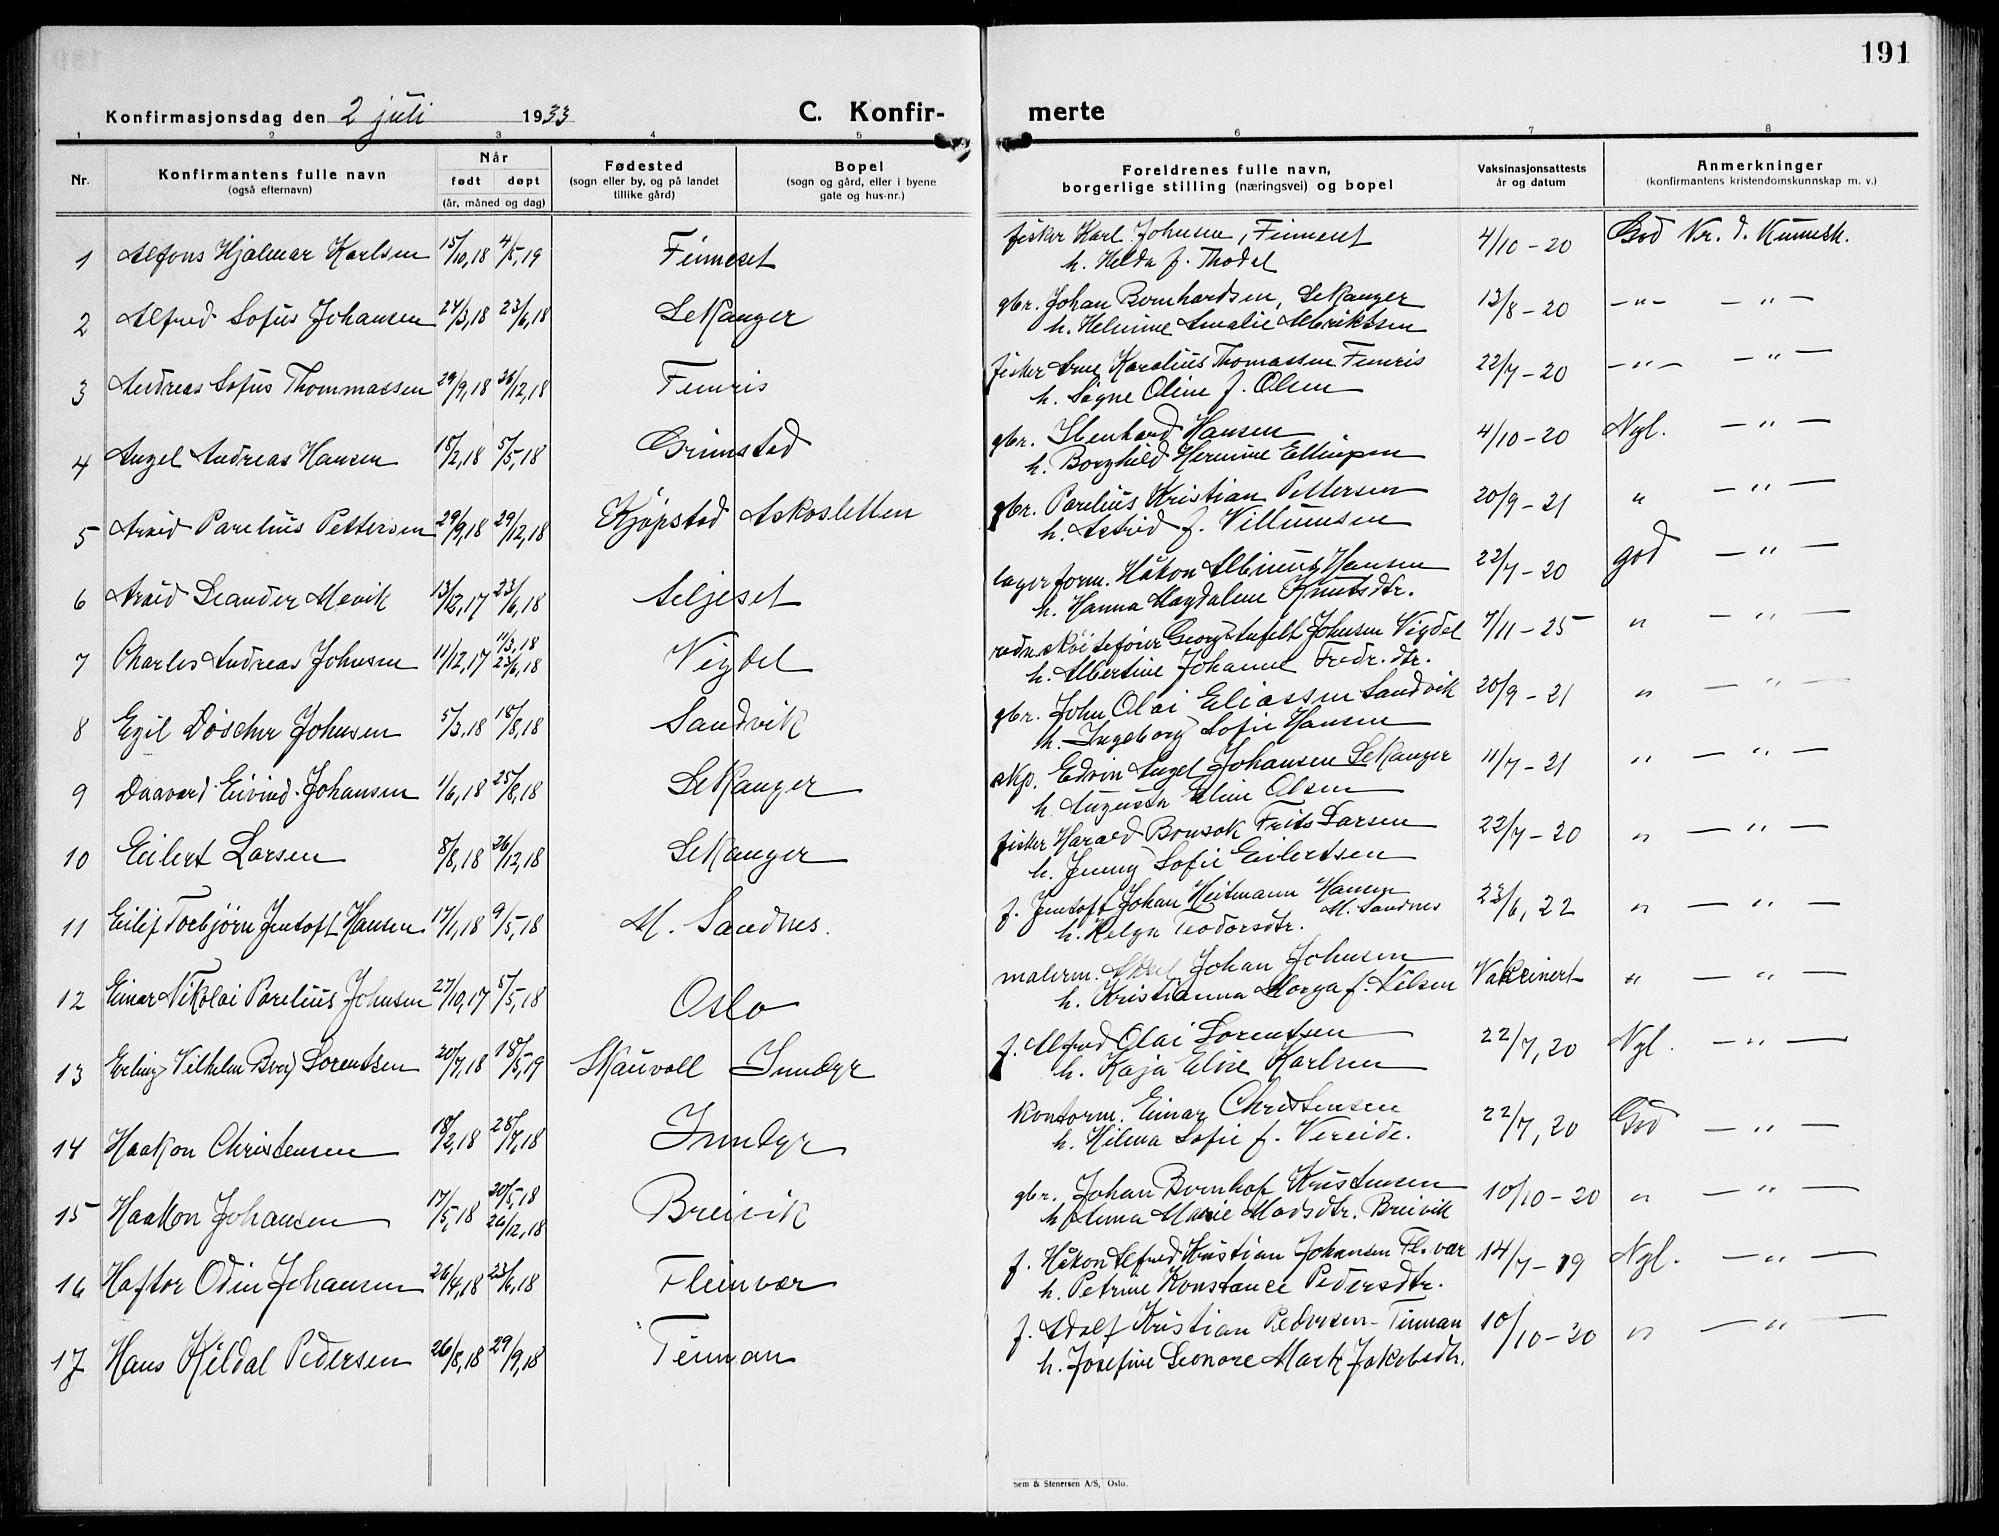 191
Konfirmasjonsdag den 2 juli 1933 C. Konfir- merte
1 2 3 4 5 6 7 8
Nr. Konfirmantens fulle navn (også efternavn) Når født døpt (år, måned og dag) Fødested (sogn eller by, og på landet tillike gård) Bopel (sogn og gård, eller i byene gate og hus-nr.) Foreldrenes fulle navn, borgerlige stilling (næringsvei) og bopel Vaksinasjonsattests år og datum Anmerkninger (konfirmantens kristendomskunnskap m. v.)
1 Alfons Hjalmar Karlsen 15/10,18 4/5,19 Finneset fisker Karl Johnsen, Finneset 4/10-20 God Kr. d. Kunnsk.
h. Helda f. Thodal
2 Alfred Sofus Johansen 24/3,18 23/6,18 Sekanger gbr. Johan Bernhardsen, Sekanger 13/8-20 -"- - " -
h. Helmine Amalie Albriktsen
3 Andreas Sofus Thommassen 29/9,18 26/12,18 Femris fisker Arne Karolius Thomassen Femris 22/7-20 -"- - " -
h. Signe Oline f. Olsen
4 Angel Andreas Hansen 18/2,18 5/5,18 Grimstad gbr. Ibenhard Hansen 4/10-20 Ngl. - " -
h. Borghild Hermine Ellingsen
5 Arvid Parelius Pettersen 29/9,18 29/12,18 Kjøpstad Askosletten gbr. Parelius Kristian Pettersen 20/9-21 " - " -
h. Astrid f. Villumsen
6 Arvid Leander Mevik 13/12,17 23/6,18 Seljeset lagerform. Håkon Albinus Hansen 22/7-20 god - " -
h. Hanna Magdalene Knutsdtr.
7 Charles Andreas Johnsen 11/12,17 11/3,18 23/6,18 Vigdel redn.skøitefører Georg Johnsen Vigdel 7/11-25 " - " -
h. Albertine Johanne Fredr.dtr.
8 Egil Døscher Johnsen 5/3,18 18/8,18 Sandvik gbr. John Olai Eliassen Sandvik 20/9-21 " - " -
h. Ingeborg Sofie Hansen
9 Daavard Eivind Johansen 1/6,18 25/8,18 Sekanger skp. Edvin Angel Johansen Sekanger 11/7-21 " - " -
h. Augusta Eline Olsen
10 Eilert Larsen 8/8,18 26/12,18 Sekanger fisker Harald Bonsak Frits Larsen 22/7-20 " - " -
h. Jenny Sofie Eilertsen
11 Eilif Torbjørn Jentoft Hansen 17/1,18 9/5,18 M. Sandnes. f. Jentoft Johan Heitmann Hansen M. Sandnes 23/6, 22 " - " -
h. Helga Teodorsdtr.
12 Einar Nikolai Parelius Johnsen 27/10,17 5/5,18 Oslo malerm. Aksel Johan Johnsen Vaksinert " - " -
h. Kristianna Marga f. Nilsen
13 Erling Vilhelm Berg Lorentsen 20/7,18 18/5,19 Skauvoll Inndyr f. Alfred Olai Lorentsen 22/7,20 Ngl. - " -
h. Kaja Elise Karlsen
14 Haakon Christensen 18/2,18 28/7,18 Inndyr kontorm. Einar Christensen 22/7,20 God - " -
h. Hilma Sofie f. Vereide.
15 Haakon Johansen 17/5,18 20/5,18 26/12,18 Breivik gbr. Johan Bernhof Kristensen 10/10-20 " - " -
h. Anna Marie Madsdtr. Breivik
16 Haftor Odin Johansen 26/4,18 23/6,18 Fleinvær f. Håkon Alfred Kristian Johansen Fl.vær 14/7-19 Ngl. - " -
h. Petrine Konstance Pedersdtr.
17 Hans Kildal Pedersen 26/8,18 29/9,18 Tennan f. Adolf Kristian Pedersen-Tinnan 10/10-20 " - " -
h. Josefine Leonore Mark Jakobsdtr.
Sem & Stenersen A/S, Oslo.